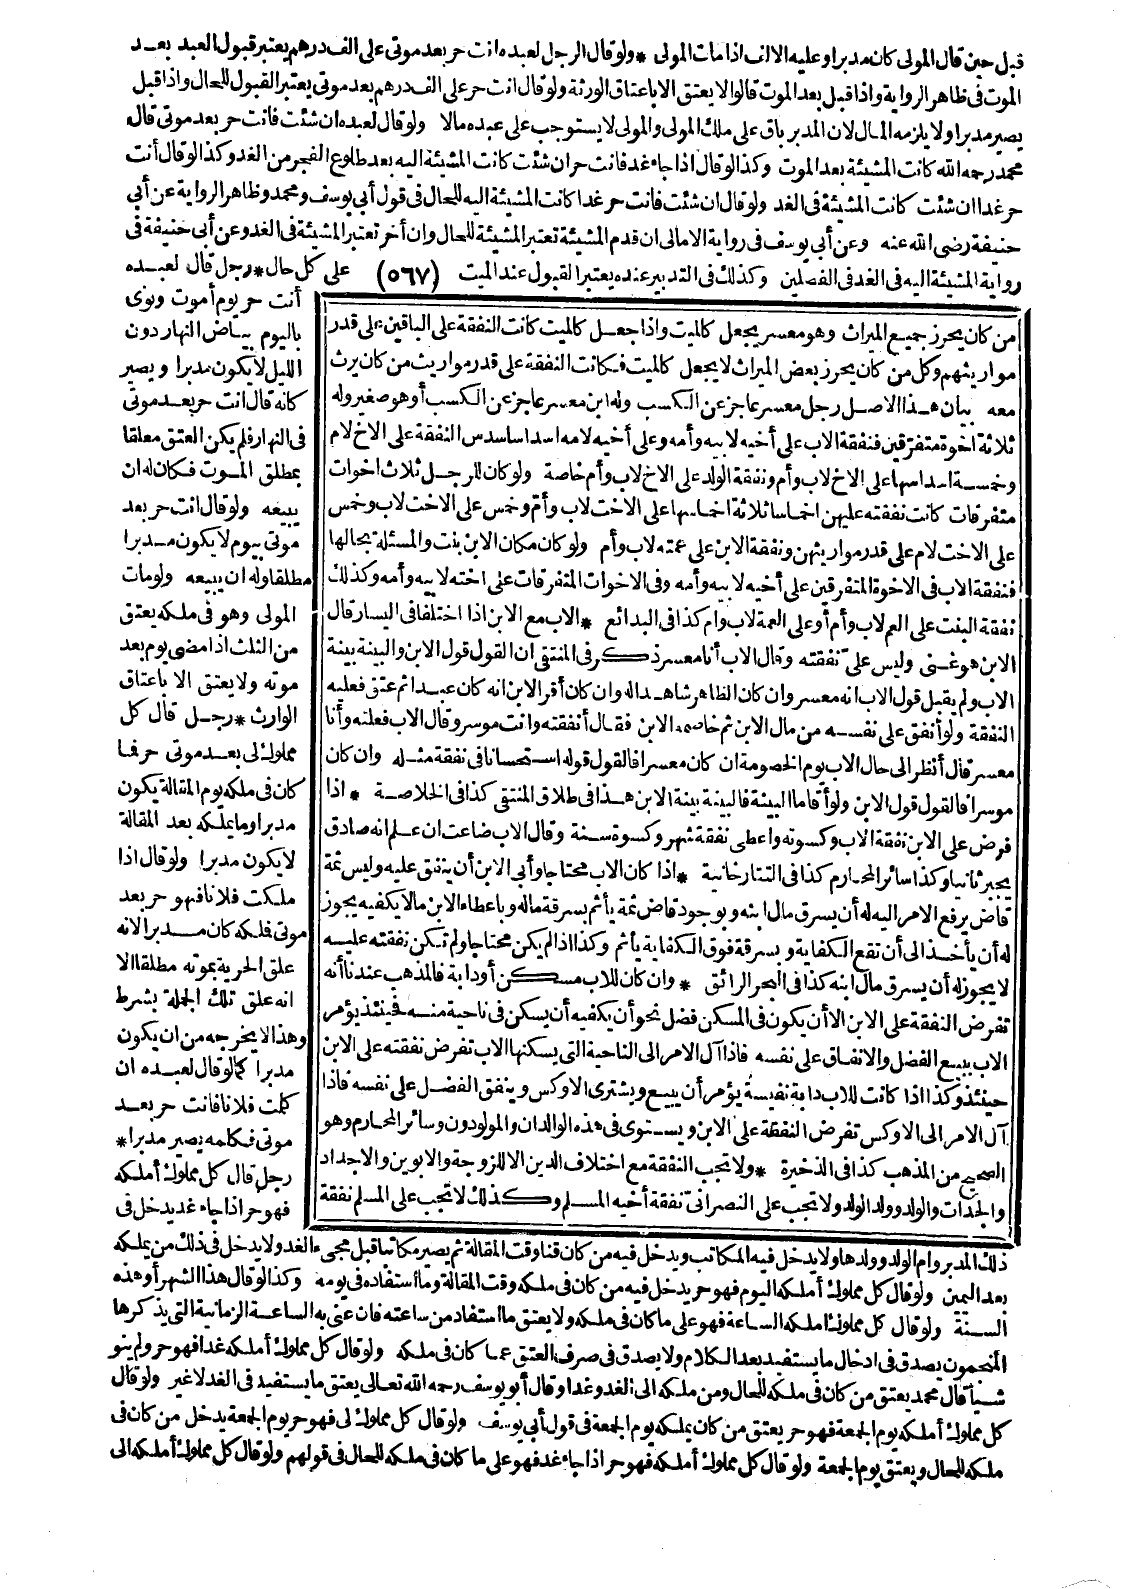 قبل حين قال المولى كان مدبرا وعليه الالف اذا مات المولى * ولو قال الرجل لعبده انت حر بعد موتى على ألف درهم يعتبر قبول العبد بعد
الموت فى ظاهر الرواية واذا قبل بعد الموت قالوا لا يعتق الا باعتاق الورثة ولو قال انت حر على ألف درهم بعد موتى يعتبر القبول للحال واذا قبل
يصير مدبرا ولا يلزمه المال لان المدبر باق على ملك المولى والمولى لا يستوجب على عبده مالا ولو قال لعبده ان شئت فانت حر بعد موتى قال
محمد رحمه الله كانت المشيئة بعد الموت وكذا لو قال اذا جاء غد فانت حر ان شئت كانت المشيئة اليه بعد طلوع الفجر من الغد وكذا لو قال أنت
حر غدا ان شئت كانت المشيئة فى الغد ولو قال ان شئت فانت حر غدا كانت المشيئة اليه للحال فى قول أبى يوسف ومحمد وظاهر الرواية عن أبى
حنيفة رضى الله عنه وعن أبى يوسف فى رواية الامالى ان قدم المشيئة تعتبر المشيئة للحال وان أخر تعتبر المشيئة فى الغد وعن أبى حنيفة فى
رواية المشيئة اليه فى الغد فى الفصلين وكذلك فى التدبير عنده يعتبر القبول عند الميت (٥٦٧) على كل حال * رجل قال لعبده
من كان يحرز جميع الميراث وهو معسر يجعل كالميت واذا جعل كالميت كانت النفقة على الباقين على قدر
مواريثهم وكل من كان يحرز بعض الميراث لا يجعل كالميت فكانت النفقة على قدر مواريث من كان يرث
معه بيان هذا الاصل رجل معسر عاجز عن الكسب وله ابن معسر عاجز عن الكسب أو هو صغير وله
ثلاثة اخوة متفرقين فنفقة الاب على أخيه لابيه وأمه وعلى أخيه لامه اسداسا سدس النفقة على الاخ لام
وخمسة اسداسها على الاخ لاب وأم ونفقة الولد على الاخ لاب وأم خاصة ولو كان للرجل ثلاث اخوات
متفرقات كانت نفقته عليهن اخماسا ثلاثة اخماسها على الاخت لاب وأم وخمس على الاخت لاب وخمس
على الاخت لام على قدر مواريثهن ونفقة الابن على عمته لاب وأم ولو كان مكان الابن بنت والمسئلة بحالها
فنفقة الاب فى الاخوة المتفرقين على أخيه لابيه وأمه وفى الاخوات المتفرقات على اخته لابيه وأمه وكذلك
نفقة البنت على العم لاب وأم أو على العمة لاب وام كذا فى البدائع * الاب مع الابن اذا اختلفا فى اليسار قال
الابن هو غنى وليس على نفقته وقال الاب أنا معسر ذكر فى المنتقى ان القول قول الابن والبينة بينة
الاب ولم يقبل قول الاب انه معسر وان كان الظاهر شاهدا له وان كان أقر الابن انه كان عبدا ثم عتق فعليه
النفقة ولو أنفق على نفسه من مال الابن ثم خاصمه الابن فقال أنفقته وانت موسر وقال الاب فعلته وأنا
معسر قال أنظر الى حال الاب يوم الخصومة ان كان معسرا فالقول قوله استحسانا فى نفقة مثله وان كان
موسرا فالقول قول الابن ولو أقاما البينة فالبينة بينة الابن هذا فى طلاق المنتقى كذا فى الخلاصة * اذا
فرض على الابن نفقة الاب وكسوته واعطى نفقة شهر وكسوة سنة وقال الاب ضاعت ان علم انه صادق
يجبر ثانيا وكذا سائر المحارم كذا فى التتارخانية * اذا كان الاب محتاجا وأبى الابن أن ينفق عليه وليس ثمة
قاض يرفع الامر اليه له أن يسرق مال ابنه وبوجود قاض ثمة يأثم بسرقة ماله وباعطاء الابن مالا يكفيه يجوز
له أن يأخذ الى أن تقع الكفاية وبسرقة فوق الكفاية يأثم وكذا اذا لم يكن محتاجا ولم تكن نفقته عليه
لا يجوز له أن يسرق مال ابنه كذا فى البحر الرائق * وان كان للاب مسكن أو دابة فالمذهب عندنا أنه
تفرض النفقة على الابن الا أن يكون فى المسكن فضل نحو أن يكفيه أن يسكن فى ناحية منه فحينئذ يؤمر
الاب ببيع الفضل والانفاق على نفسه فاذا آل الامر الى الناحية التى يسكنها الاب تفرض نفقته على الابن
حينئذ وكذا اذا كانت للاب دابة نفيسة يؤمر أن يبيع ويشترى الاوكس وينفق الفضل على نفسه فاذا
آل الامر الى الاوكس تفرض النفقة على الابن ويستوى فى هذه الوالدان والمولودون وسائر المحارم وهو
الصحيح من المذهب كذا فى الذخيرة * ولا تجب النفقة مع اختلاف الدين الا للزوجة والابوين والاجداد
والجدات والولد وولد الولد ولا تجب على النصرانى نفقة أخيه المسلم وكذلك لا تجب على المسلم نفقة
أنت حر يوم أموت ونوى
باليوم بياض النهار دون
الليل لا يكون مدبرا ويصير
كانه قال انت حر بعد موتى
فى النهار فلم يكن العتق معلقا
بمطلق الموت فكان له ان
يبيعه ولو قال انت حر بعد
موتى بيوم لا يكون مدبرا
مطلقا وله ان يبيعه ولو مات
المولى وهو فى ملكه يعتق
من الثلث اذا مضى يوم بعد
موته ولا يعتق الا باعتاق
الوارث * رجل قال كل
مملوك لى بعد موتى حر فما
كان فى ملكه يوم المقالة يكون
مدبرا وما يملكه بعد المقالة
لا يكون مدبرا ولو قال اذا
ملكت فلانا فهو حر بعد
موتى فملكه كان مدبرا لانه
علق الحرية بموته مطلقا الا
انه علق تلك الجملة بشرط
وهذا لا يخرجه من ان يكون
مدبرا كما لو قال لعبده ان
كلمت فلانا فانت حر بعد
موتى فكلمه يصير مدبرا *
رجل قال كل مملوك أملكه
فهو حر اذا جاء غد يدخل فى
ذلك المدبر وام الولد وولدها ولا يدخل فيه المكاتب ويدخل فيه من كان قنا وقت المقالة ثم يصير مكاتبا قبل مجىء الغد ولا يدخل فى ذلك من يملكه
بعد اليمين ولو قال كل مملوك أملكه اليوم فهو حر يدخل فيه من كان فى ملكه وقت المقالة وما استفاده فى يومه وكذا لو قال هذا الشهر أو هذه
السنة ولو قال كل مملوك املكه الساعة فهو على ما كان فى ملكه ولا يعتق ما استفاد من ساعته فان عنى به الساعة الزمانية التى يذكرها
المنجمون يصدق فى ادخال ما يستفيد بعد الكلام ولا يصدق فى صرف العتق عما كان فى ملكه ولو قال كل مملوك أملكه غدا فهو حر ولم ينو
شيأ قال محمد يعتق من كان فى ملكه للحال ومن ملكه الى الغد وغدا وقال أبو يوسف رحمه الله تعالى يعتق ما يستفيد فى الغد لا غير ولو قال
كل مملوك أملكه يوم الجمعة فهو حر يعتق من كان يملكه يوم الجمعة فى قول أبى يوسف ولو قال كل مملوك لى فهو حر يوم الجمعة يدخل من كان فى
ملكه للحال ويعتق يوم الجمعة ولو قال كل مملوك أملكه فهو حر اذا جاء غد فهو على ما كان فى ملكه للحال فى قولهم ولو قال كل مملوك أملكه الى